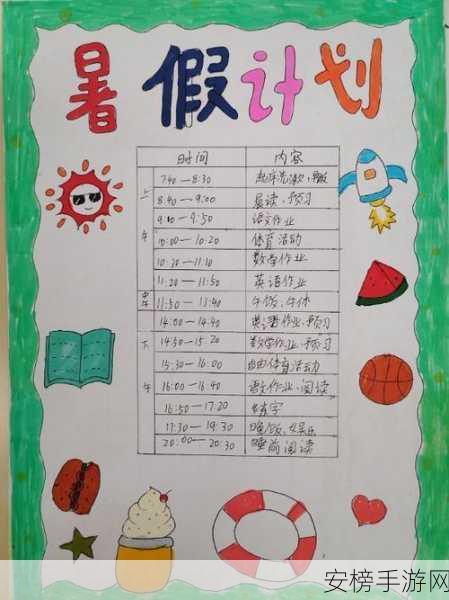 暑假计划
时间 内容
上午
7:40—8:30 起床洗漱、早饭
8:40—9:00 晨读、预习
9:10—9:50 语文作业
10:00—10:20 体育活动
10:30—11:10 数学作业
11:20—11:50 英语作业
中午 11:50—13:40 午饭、午休
下午
14:00—14:40 英语作业、预习
14:50—15:20 数学作业、预习
15:30—16:00 自由体育活动
16:00—16:40 语文作业、阅读
16:50—17:20 练字
17:30—19:30 晚饭、娱乐
20:00—20:30 睡前阅读
安榜手游网